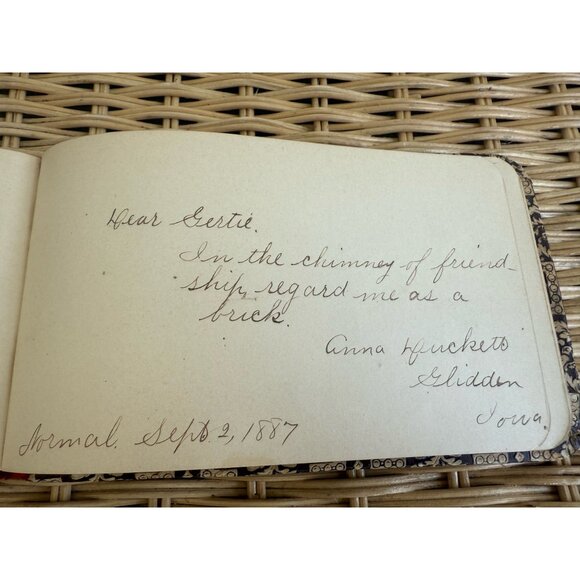 Dear Gertie.
In the chimney of friend-
ship, regard me as a
brick.
Anna Duckett
Glidden
Iowa.
Normal. Sept 2, 1887